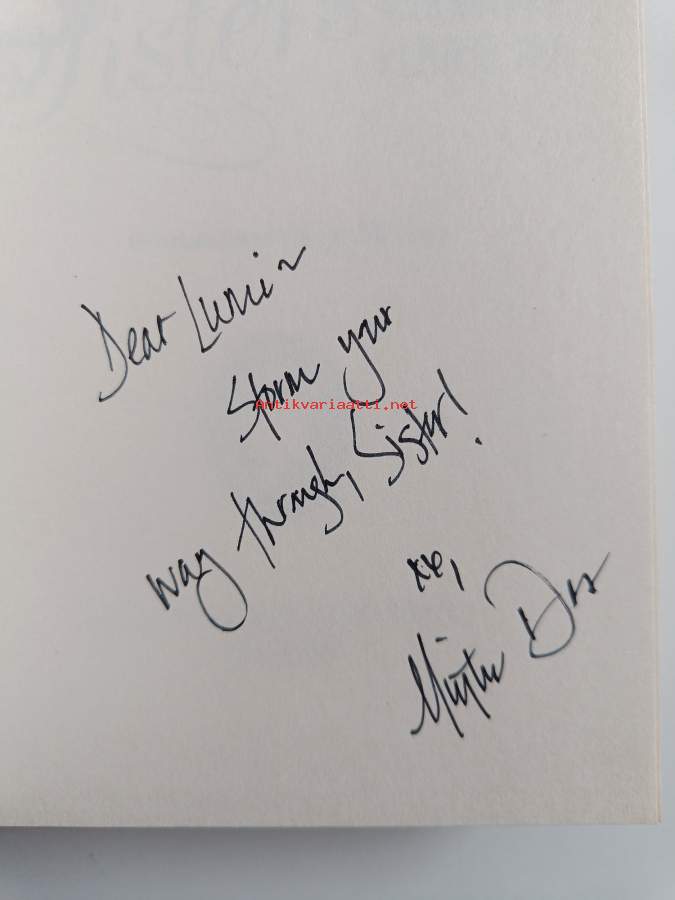 Dear Lumi ~
Storm your
Antikvariaatti.net
way through, Sister!
xx,
Minttu Das